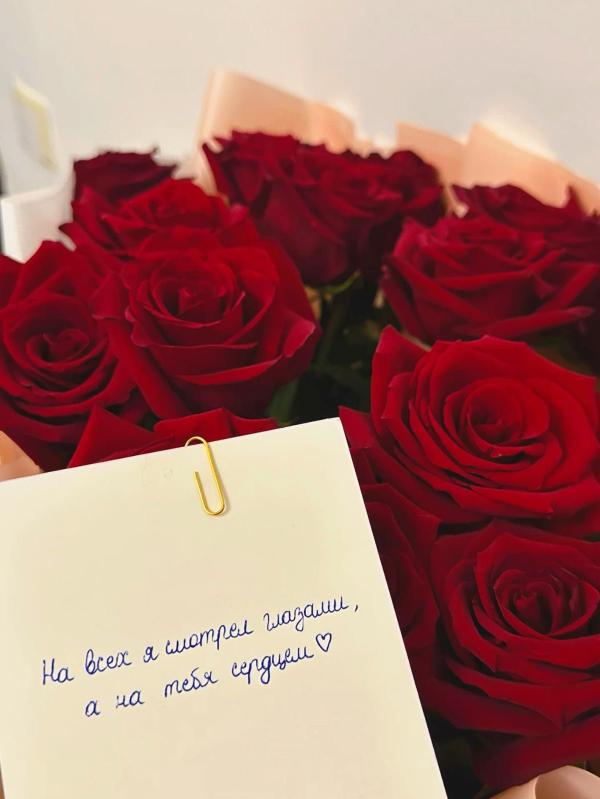 На всех я смотрел глазами,
а на тебя сердцем♡